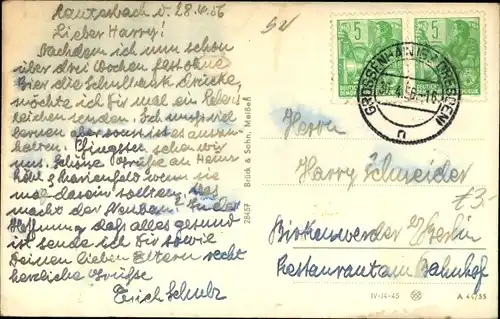 Lauterbach d. 28.4.56
Lieber Harry!
Nachdem ich nun schon
über drei Wochen fast ohne
Bier die Schulbank drücke
möchte ich Dir mal ein Lebens
zeichen senden. Ich muß viel
lernen aber sonst ist es auszu
halten. Pfingsten sehen wir
uns. Schöne Grüße an Heinz
Marienfeld wenn sie
mal da sein sollten. Was
macht der Neubau? In der
Hoffnung daß alles gesund
ist sende ich Dir sowie
Deinen lieben Eltern recht
herzliche Grüße
Erich Schulz
52
5
5
DEUTSCHE DEMOKRATISCHE
GROSSENHAIN (BZ DRESDEN)
4.56.-16
n
Herrn
Harry Schneider
£3-
Birkenwerder b/Berlin
Restaurant am Bahnhof
28457 Brück & Sohn, Meißen
IV-14-45
A 44/55